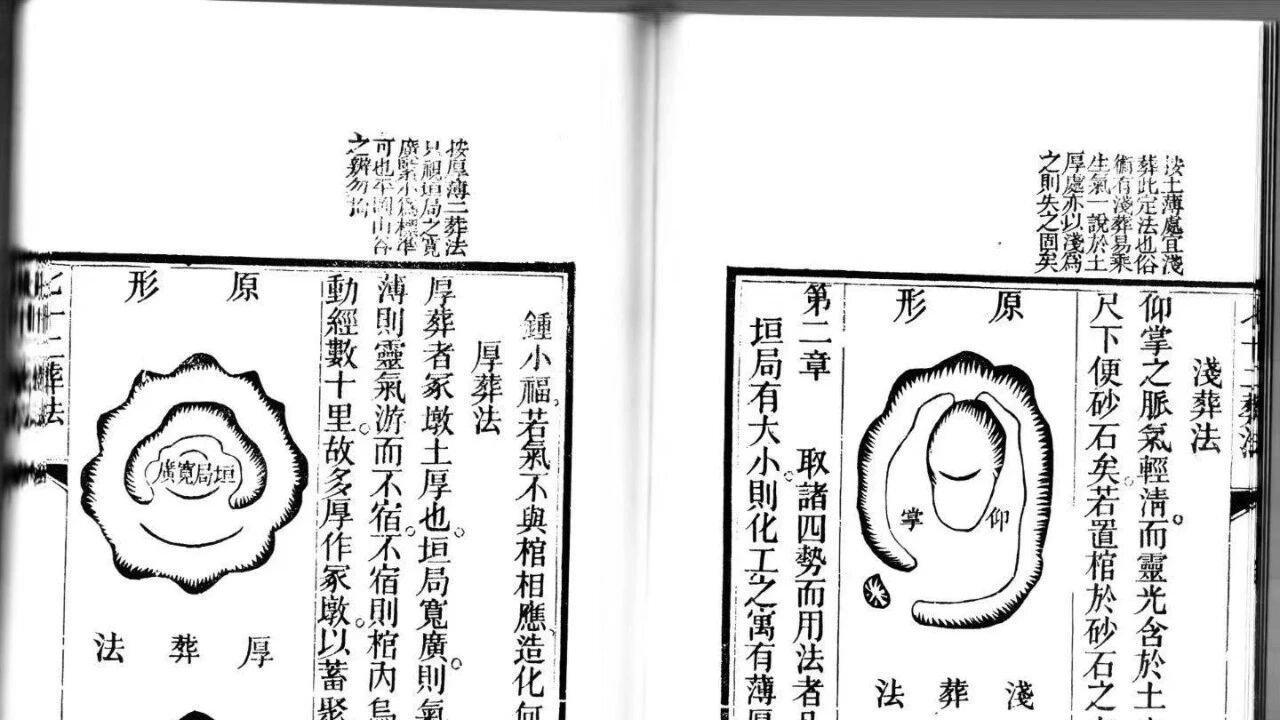 按土薄處宜淺
葬此定法也俗
術有淺葬易乘
生氣一說於土
厚處亦以淺為
之則失之固矣
七十二葬法
淺葬法
仰掌之脈氣輕清而靈光含於土
尺下便砂石矣若置棺於砂石之
原形
仰掌
淺葬法
第二章 取諸四勢而用法者
垣局有大小則化工之寓有薄厚
按厚薄二葬法
只視垣局之寬
廣緊小為標準
可也平岡山谷
之辨勿拘
鍾小福若氣不與棺相應造化何
厚葬法
厚葬者冢墩土厚也垣局寬廣則氣
薄則靈氣游而不宿不宿則棺內烏
動經數十里故多厚作冢墩以蓄聚
原形
垣局寬廣
厚葬法
七十二葬法